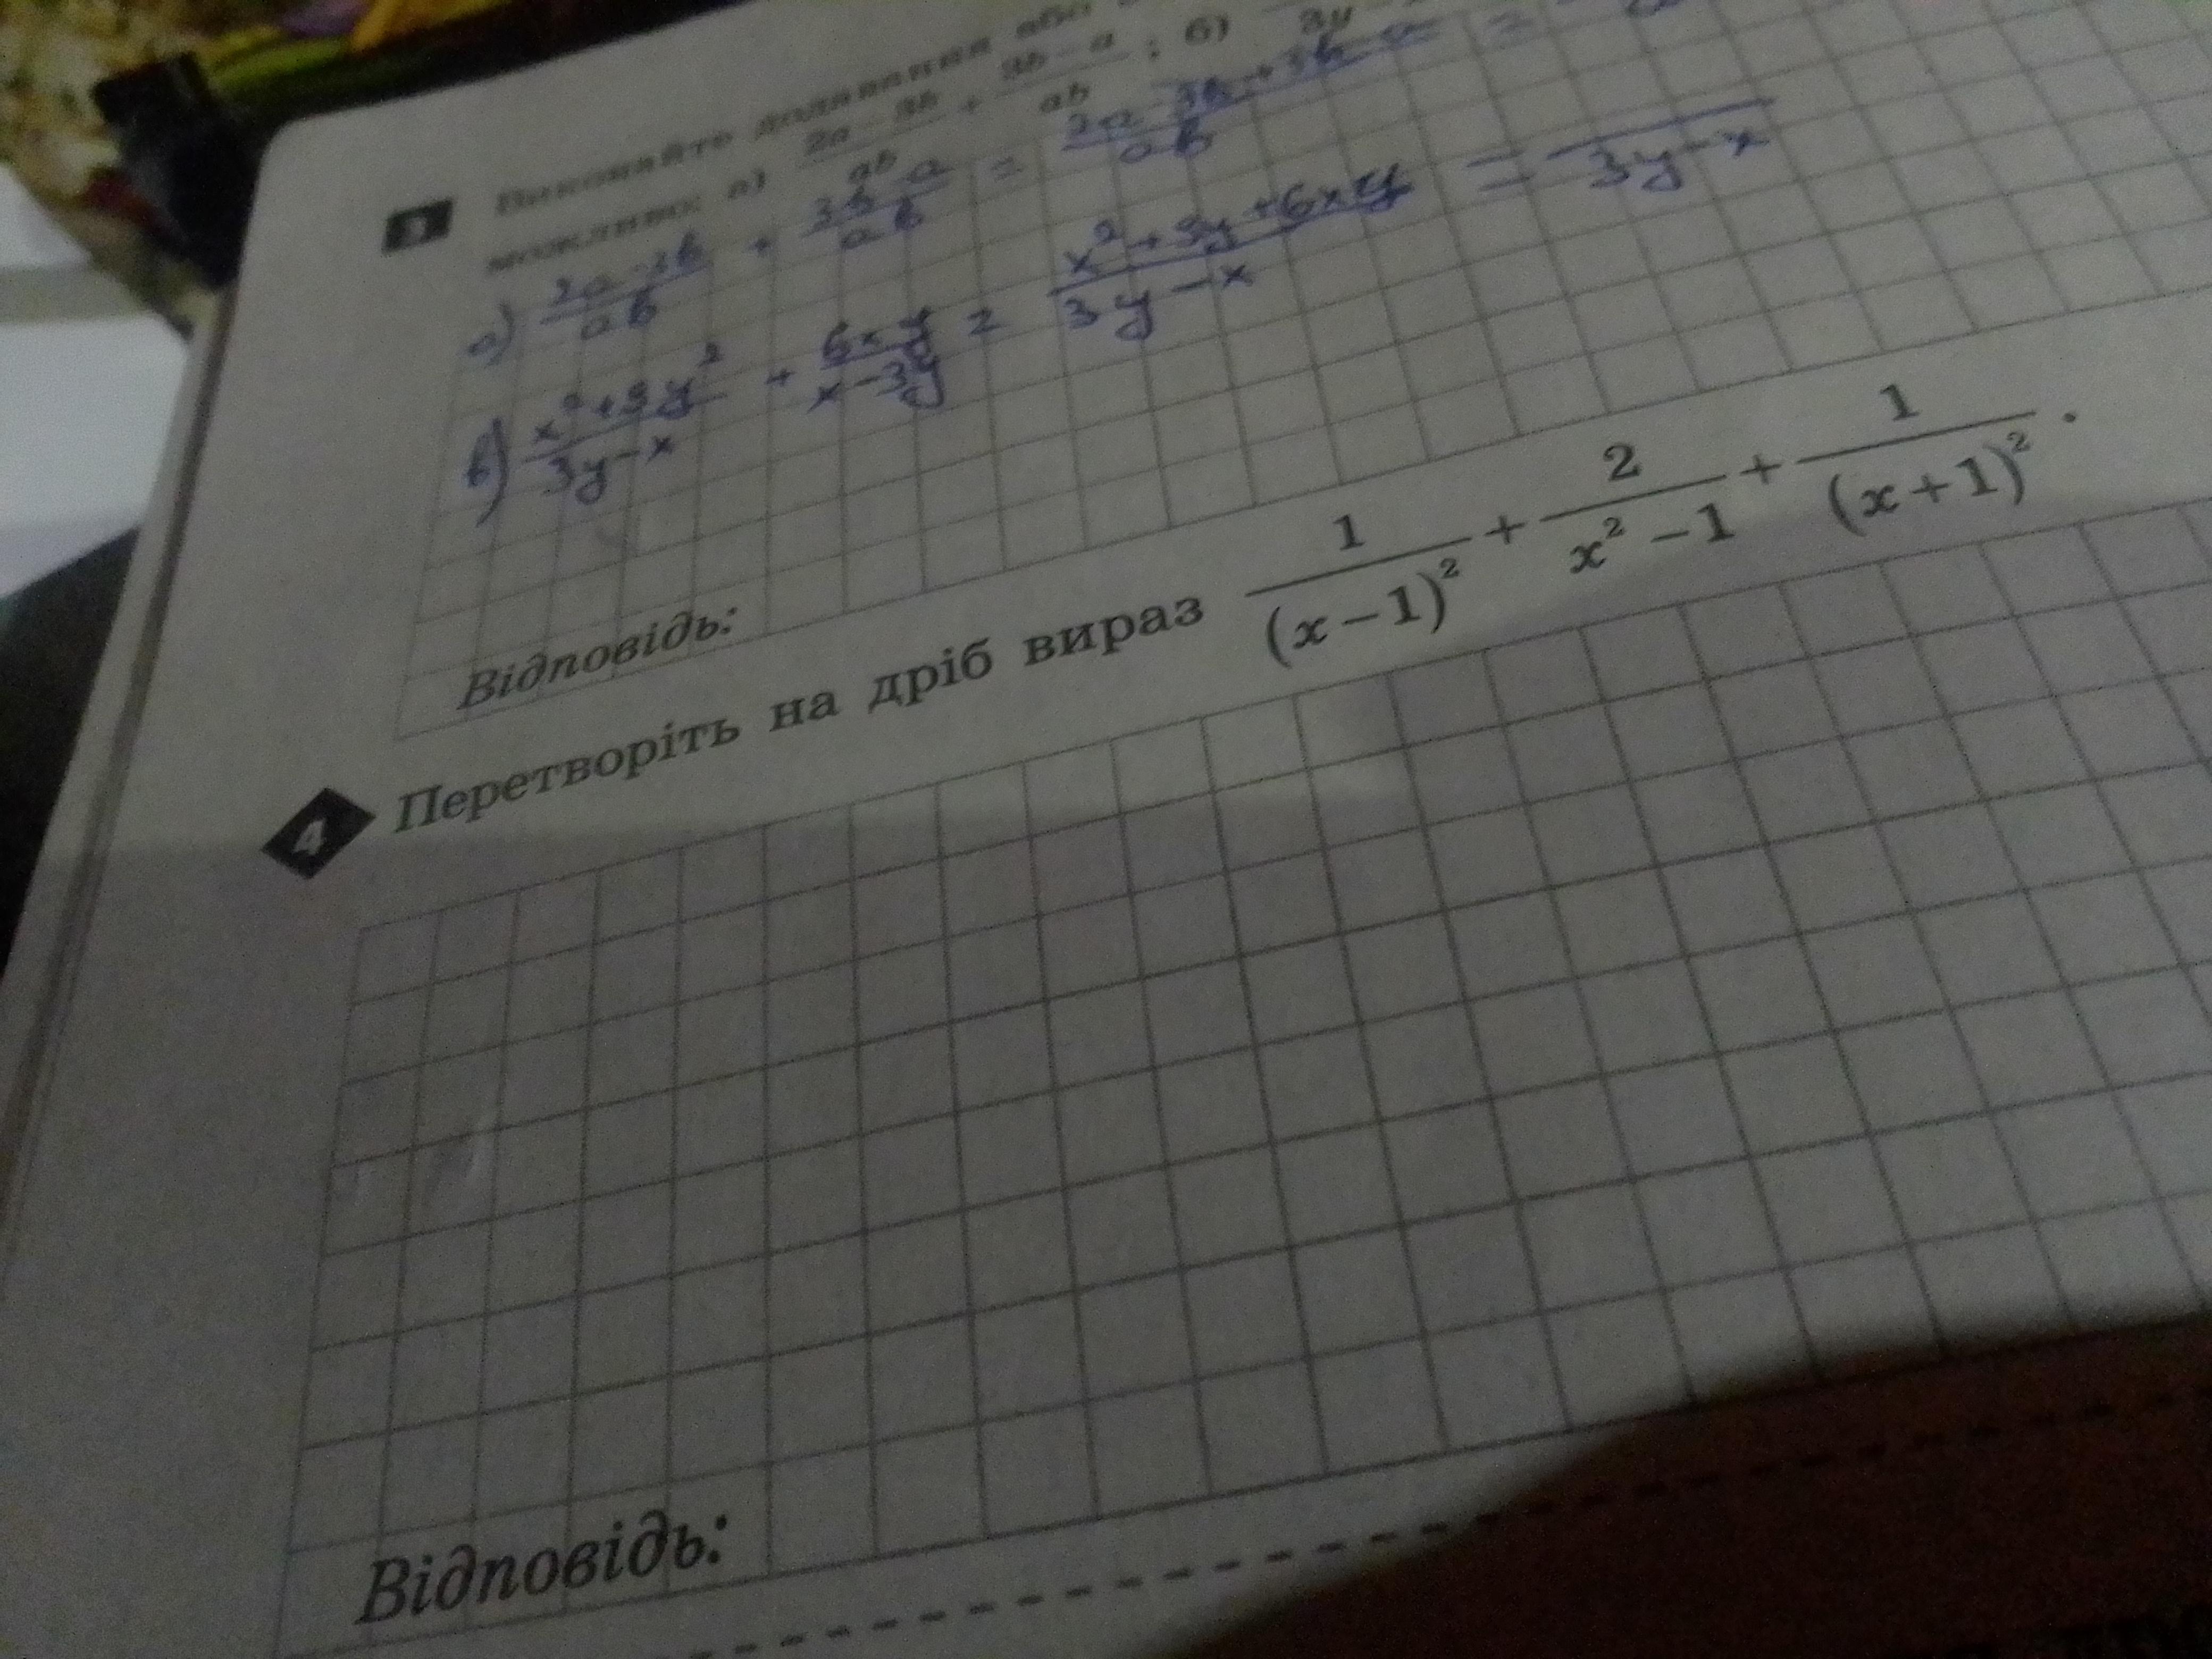 3 Виконайте додавання або
можливо: а) (2a − 3b)/(ab) + (3b − a)/(ab); б)
а) (2a − 3b)/(ab) + (3b − a)/(ab) = (2a − 3b + 3b − a)/(ab) =
б) (x² + 9y²)/(3y − x) + (6xy)/(x − 3y) = (x² + 9y + 6xy)/(3y − x) = /(3y − x)
Відповідь:
4 Перетворіть на дріб вираз 1/(x − 1)² + 2/(x² − 1) + 1/(x + 1)².
Відповідь: